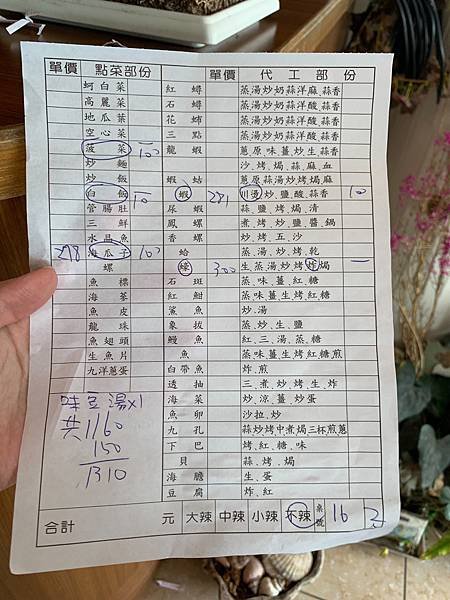 單價 點菜部份 單價 代工部份
蚵白菜 紅蟳 蒸湯炒奶蒜洋麻.蒜香
高麗菜 石蟳 蒸湯炒奶蒜洋酸.蒜香
地瓜葉 花蟳 蒸湯炒奶蒜洋酸.蒜香
空心菜 三點 蒸湯炒奶蒜洋酸.蒜香
菠菜 100 龍蝦 蔥原味薑炒生.蒜香
炒麵 沙.烤.焗.蒜.麻.血
炒飯 蝦蛄 蔥原蒜湯炒烤焗麻
白飯 10 蝦 281 川燙炒.鹽.酸.蒜香 10
管腸肚 尿蝦 蒜.鹽.烤.焗.清
三鮮 鳳螺 煮.烤.炒.鹽.醬.鍋
水晶魚 香螺 炒.烤.五.沙
278 海瓜子 100 蛤 蒸.湯.炒.烤.乾
螺 蠔 300 生.蒸湯.炒烤炸焗
魚標 石斑 蒸.味.薑.紅
海茶 紅魽 蒸味.薑生烤.紅糖
魚皮 鯊魚 炒.湯
龍珠 象拔 蒸.炒.生.鹽
魚翅頭 鰻魚 紅.三.湯.蒸.糖
生魚片 魚 蒸味薑生烤紅糖煎
九洋蔥蛋 白帶魚 炸.煎
透抽 三.煮.炒.烤.生.炸
海菜 炒.涼.薑.炒蛋
魚卵 沙拉.炒
九孔 蒜炒烤中煮焗三杯煎蔥
下巴 烤.紅.糖.味
貝 蒜.烤.焗
海膽 生.蛋
豆腐 炸.紅
味豆湯x1
共1160
150
1310
合計 元 大辣 中辣 小辣 不辣 桌號 16